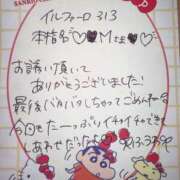 SANRIO
イルファーロ 313
本指名♡♥Mさま♡
お誘い頂いて
ありがとうございました!
最後バタバタしちゃってごめんね
今日もたーっぷりイチャイチャできて
しあわせだった